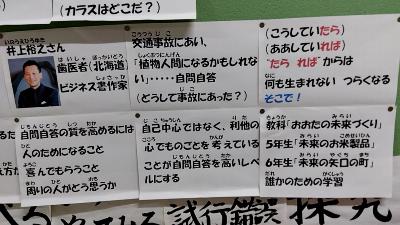 (カラスはどこだ?)
いのうえひろゆき
井上裕之さん
はいしゃ ほっかいどう
歯医者(北海道)
しょさっか
ビジネス書作家
こうつうじこ
交通事故にあい、
しょくぶつにんげん
「植物人間になるかもしれな
い」・・・・・自問自答
(どうして事故にあった?)
(こうしていたら)
(ああしていれば)
"たら れば"からは
何も生まれない つらくなる
そこで!
自問自答の質を高めるには
人のためになること
喜んでもらうこと
周りの人がどう思うか
自己中心ではなく、利他の
心でものごとを考えている
ことが自問自答を高いレベ
ルにする
教科「おおたの未来づくり」
5年生「未来のお米製品」
6年生「未来の矢口の町」
誰かのための学習
試行錯誤 探究